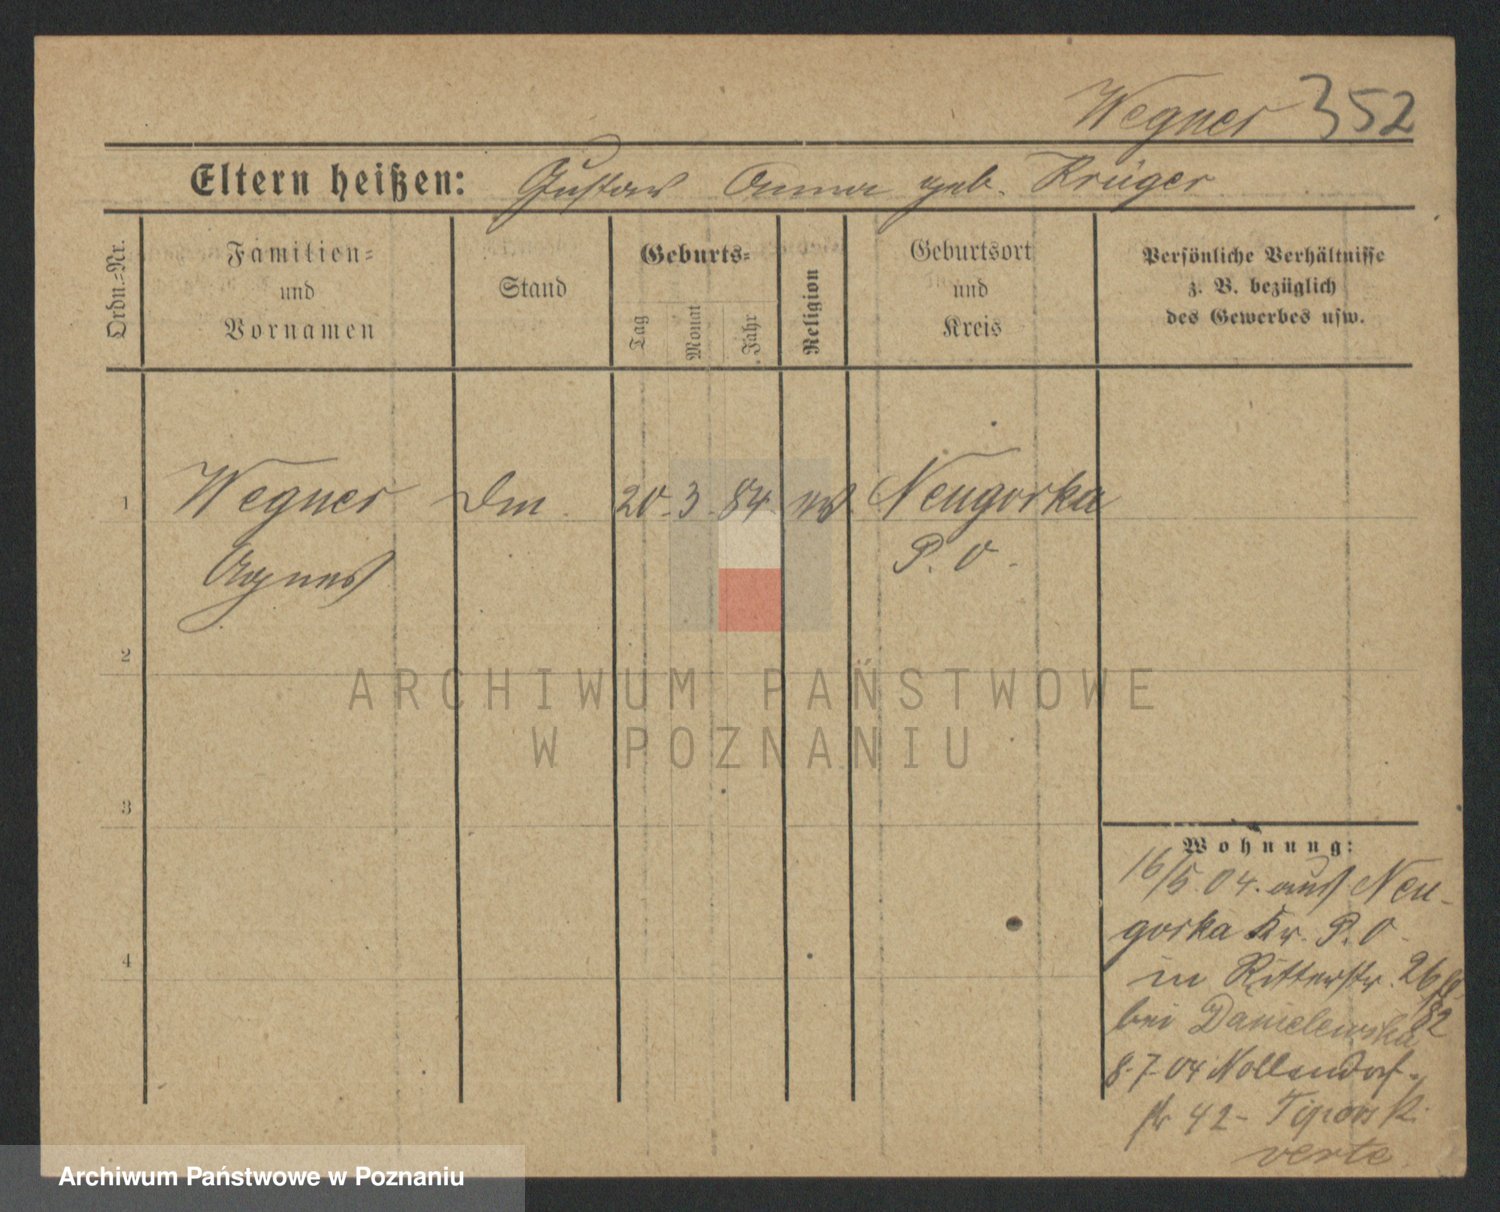 Wegner 352
Eltern heißen: Gustav Anna geb. Krüger
Ordn.-Nr.
Familien-
und
Vornamen
Stand
Geburts-
Tag
Monat
Jahr
Religion
Geburtsort
und
Kreis
Persönliche Verhältnisse
z. B. bezüglich
des Gewerbes usw.
1 Wegner 20. 3. 84. Neugorka
Agnes P. O.
2
3
4
Wohnung:
16/5. 04. aus Neu-
gorka Kr. P. O.
in Ritterstr. 26
bei Danielewska
8.7.04 Nollendorf-
str 42-
verte
ARCHIWUM PAŃSTWOWE
W POZNANIU
Archiwum Państwowe w Poznaniu